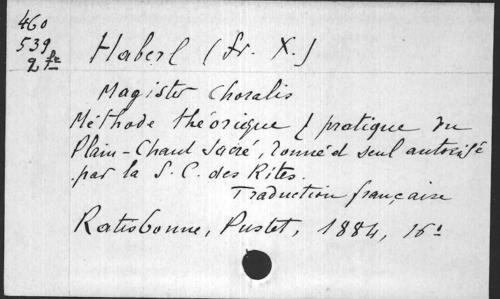 460
539
2 fr
Haberl (Fr. X.)
Magister Choralis
Méthode théorique & pratique du
Plain-Chant Sacré, seul autorisé
par la S. C. des Rites.
Traduction française
Ratisbonne, Pustet, 1884, 16°